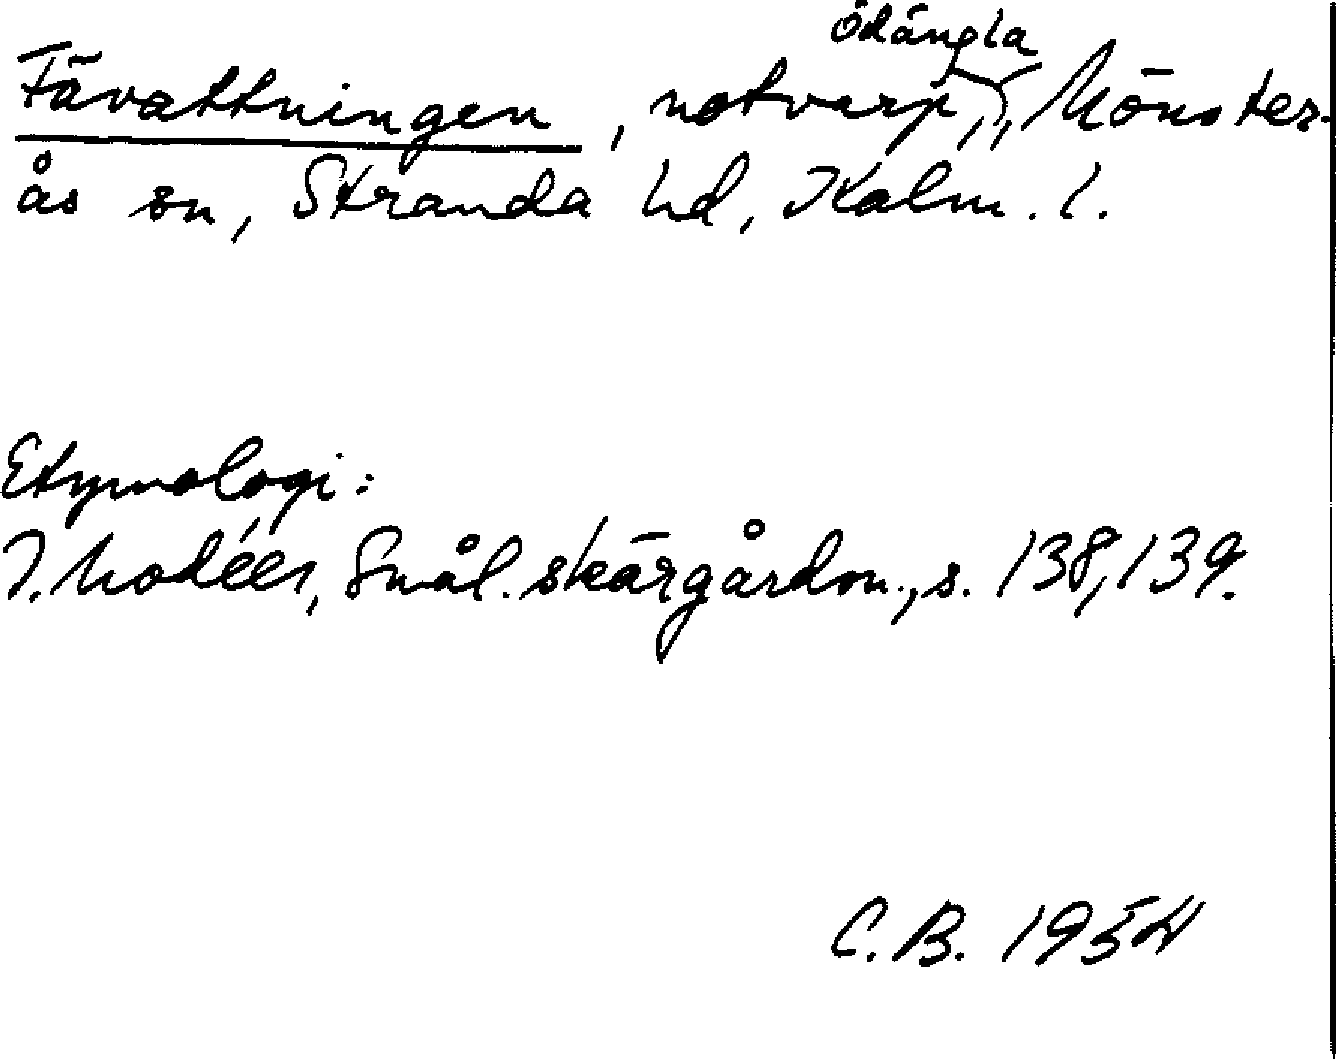 Ödängla
Fävattningen, notvarp, , Mönster-
ås sn, Stranda hd, Kalm. l.
Etymologi:
I. Modéer, Smål. skärgårdsn., s. 138, 139.
C.B. 1954